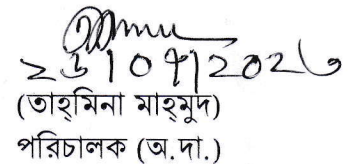 ২৬|০৭|২০২৩
(তাহ্‌মিনা মাহ্‌মুদ)
পরিচালক (অ.দা.)